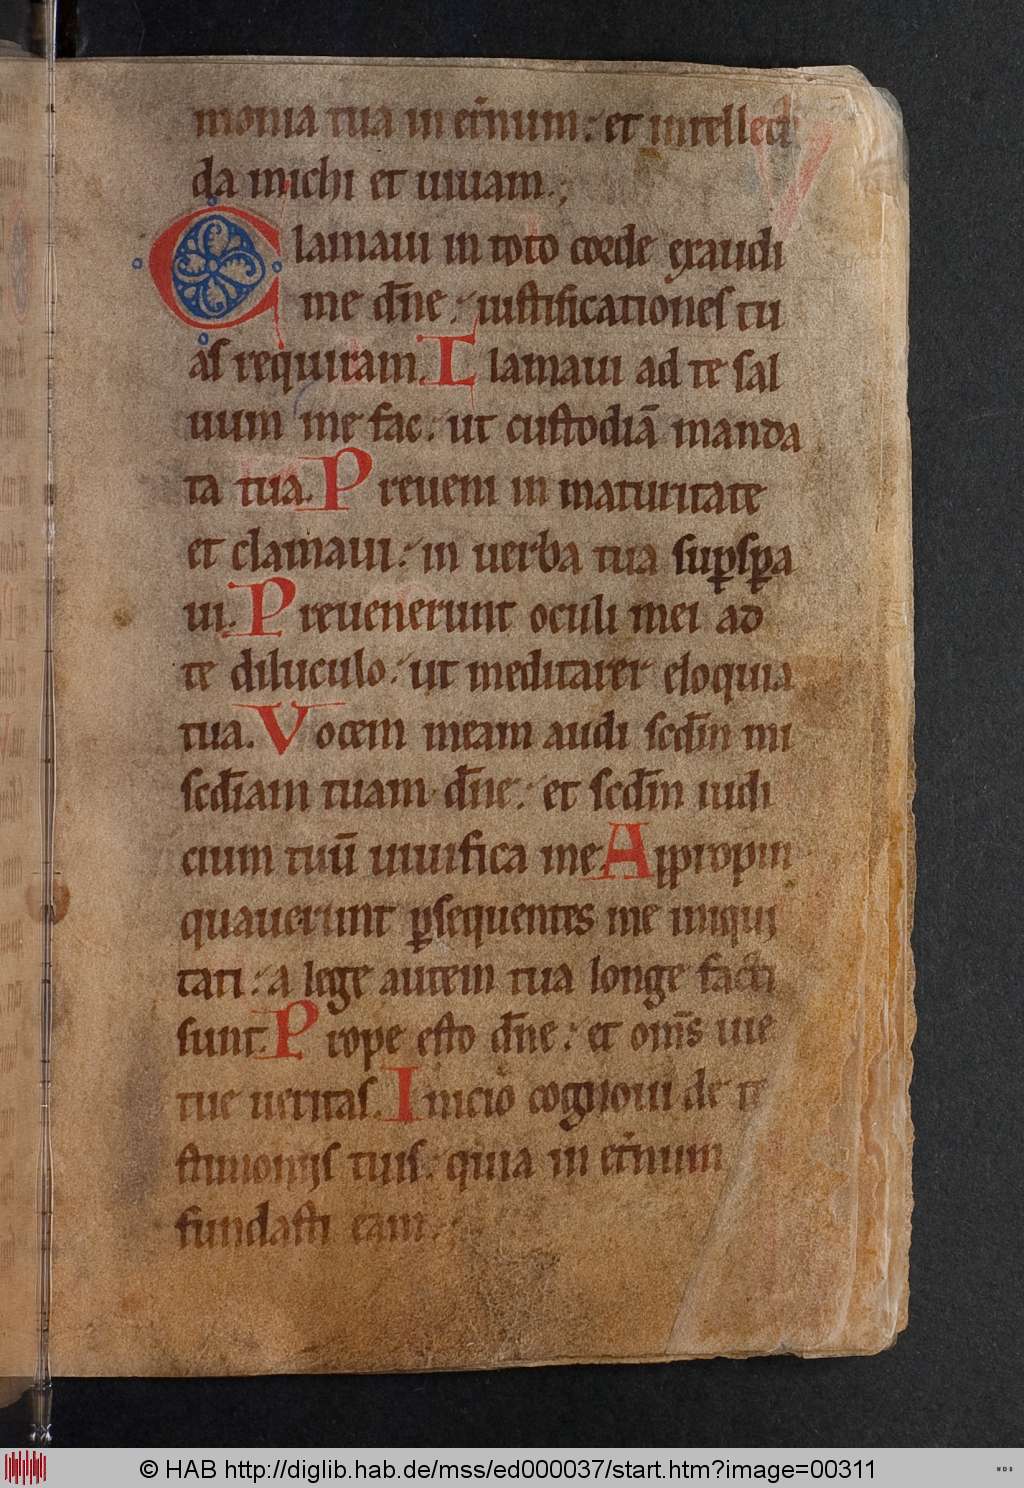 monia tua in et̄num: et intellectū
da michi et uiuam.;
Clamaui in toto corde exaudi
me dn̄e: iustificationes tu
as requiram. Clamaui ad te sal
uum me fac: ut custodiā manda
ta tua. Preueni in maturitate
et clamaui: in uerba tua suꝑsꝑa
ui. Preuenerunt oculi mei ad
te diluculo: ut meditarer eloquia
tua. Vocem meam audi scd̄m mi
scd̄iam tuam dn̄e: et scd̄m iudi
cium tuū uiuifica me. Appropin
quauerunt ꝑsequentes me iniqui
tati: a lege autem tua longe facti
sunt. Prope esto dn̄e: et om̄s uie
tue ueritas. Inicio cognoui de te
stimonijs tuis: quia in et̄num
fundasti eam:
© HAB http://diglib.hab.de/mss/ed000037/start.htm?image=00311